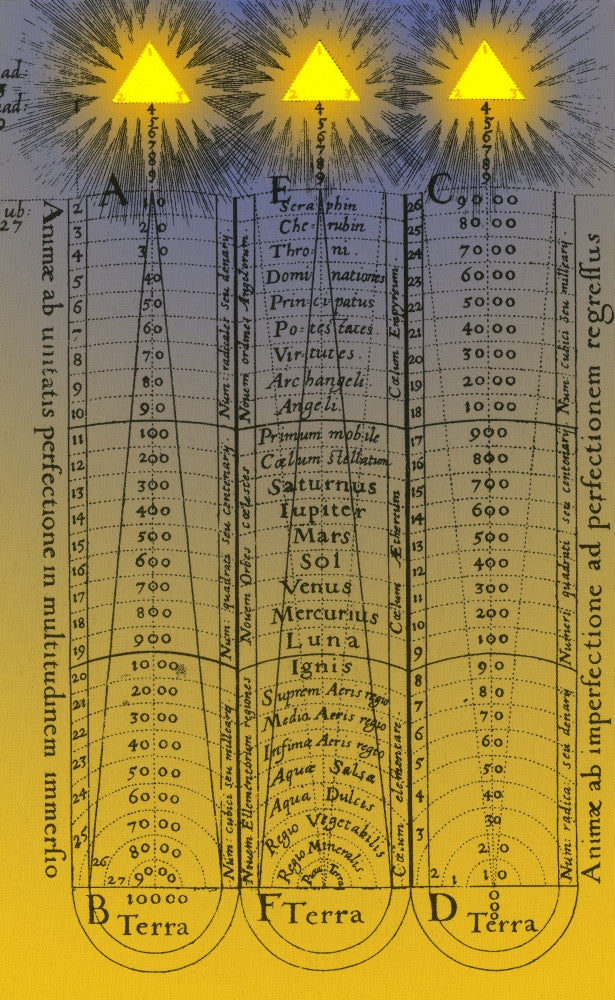 1
2 3
4
5
6
7
8
9
1
2 3
4
5
6
7
8
9
1
2 3
4
5
6
7
8
9
ad
ad:
ub:
27
1
Animæ ab unitatis perfectione in multitudinem immersio
A
2 10
3 20
4 30
5 40
6 50
60
8 70
9 80
10 90
11 100
12 200
13 300
14 400
15 500
16 600
17 700
18 800
19 900
20 1000
21 2000
22 3000
23 4000
24 5000
6000
7000
25 8000
26
27 9000
10000
B Terra
Num: radicales seu denary
Num: quadrati seu centenary
Num: cubici seu milleary
E
Seraphin
Cherubin
Throni
Dominationes
Principatus
Potestates
Virtutes
Archangeli
Angeli
Primum mobile
Cœlum Stellatum
Saturnus
Iupiter
Mars
Sol
Venus
Mercurius
Luna
Ignis
Suprem Aeris regio
Media Aeris regio
Infima Aeris regio
Aqua Salsa
Aqua Dulcis
Regio Vegetabilis
Regio Mineralis
Terra
F Terra
Novem ordines Angelorum
Novem Orbes cœlestes
Novem Ellementorum regiones
Cœlum Empyreum
Cœlum Æthereum
Cœlum elementare
C
26 9000
25 8000
24 7000
23 6000
22 5000
21 4000
20 3000
19 2000
18 1000
17 900
16 800
15 700
14 600
13 500
12 400
11 300
10 200
9 100
8 90
7 80
6 70
5 60
4 50
40
3 30
20
2 1 10
D Terra
Num: cubici seu milleary
Numeri quadrati seu centenary
Num: radica: seu denary
Animæ ab imperfectione ad perfectionem regreſſus